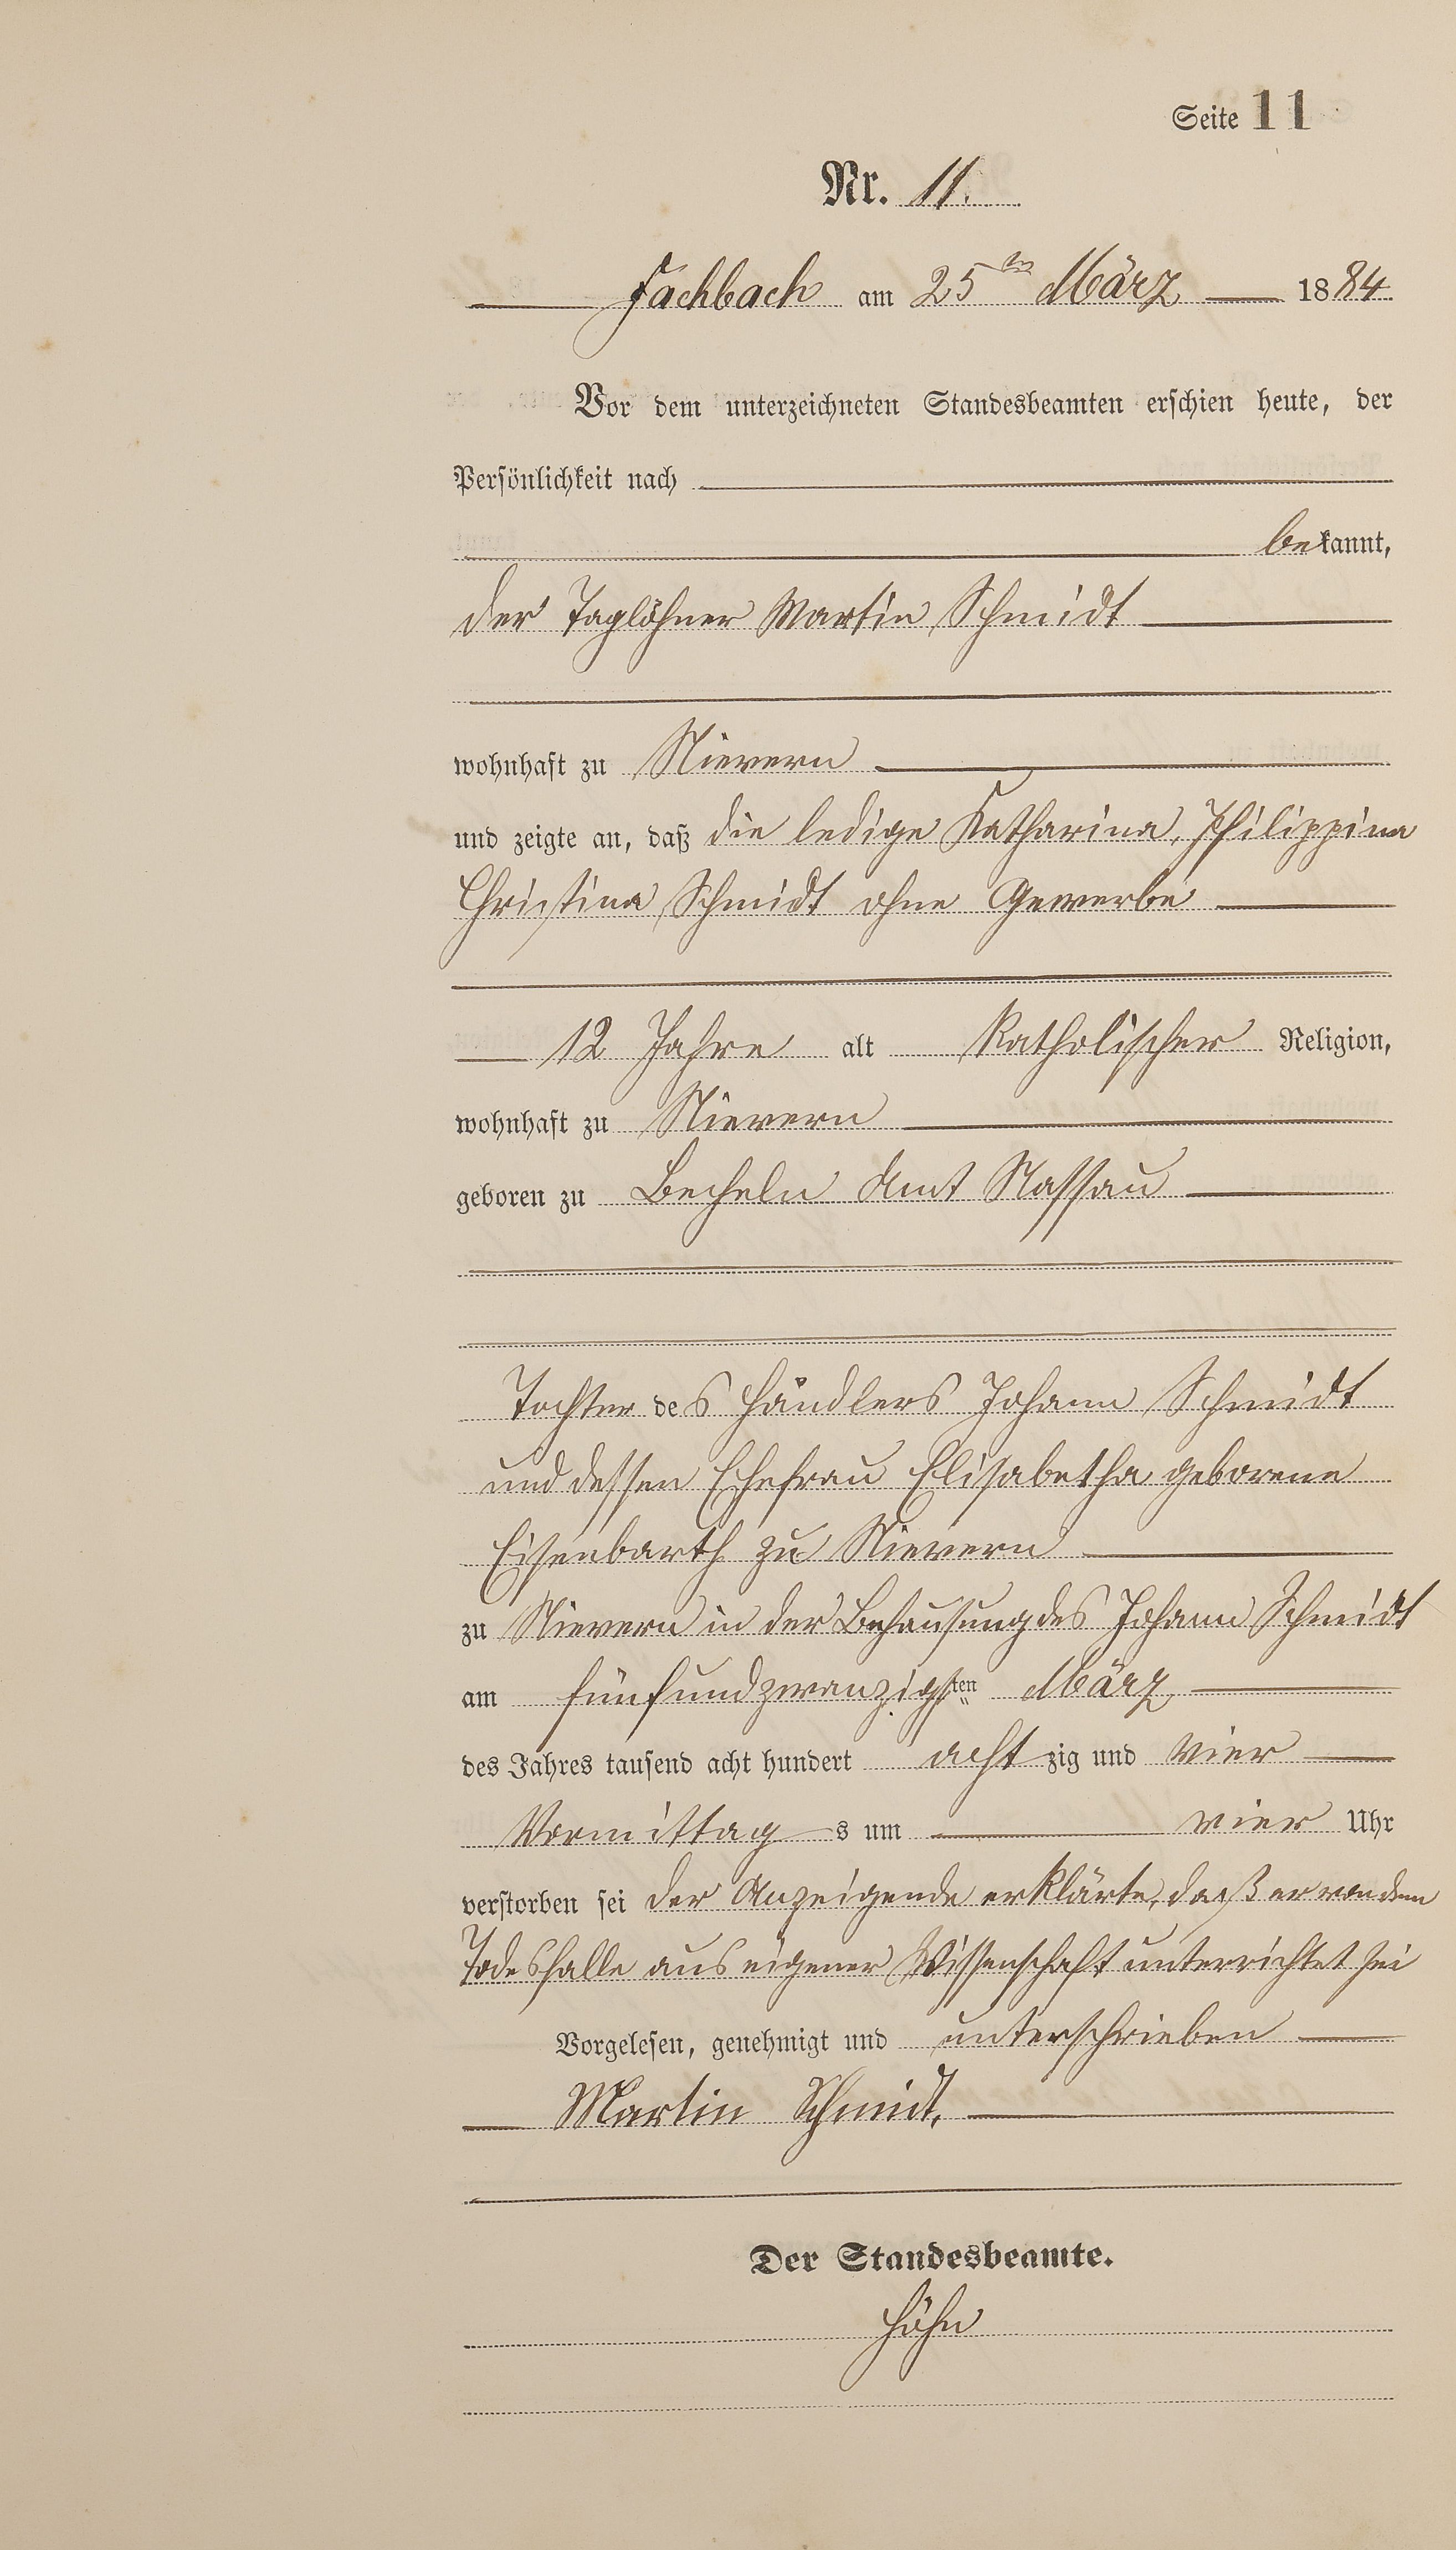 Seite 11
Nr. 11.
Fachbach am 25ten März 1884.
Vor dem unterzeichneten Standesbeamten erschien heute, der
Persönlichkeit nach
bekannt,
der Taglöhner Martin Schmidt
wohnhaft zu Nievern
und zeigte an, daß die ledige Katharina, Philippina
Christina Schmidt ohne Gewerbe
12 Jahre alt Katholischer Religion,
wohnhaft zu Nievern
geboren zu Becheln Amt Nassau
Tochter des Händlers Johann Schmidt
und dessen Ehefrau Elisabetha geborene
Eisenbarth zu Nievern
zu Nievern in der Behausung des Johann Schmidt
am fünfundzwanzigsten März
des Jahres tausend acht hundert achtzig und vier
Vormittags um vier Uhr
verstorben sei der Anzeigende erklärte, daß er von dem
Todesfalle aus eigener Wissenschaft unterrichtet sei
Vorgelesen, genehmigt und unterschrieben
Martin Schmidt.
Der Standesbeamte.
Höhn